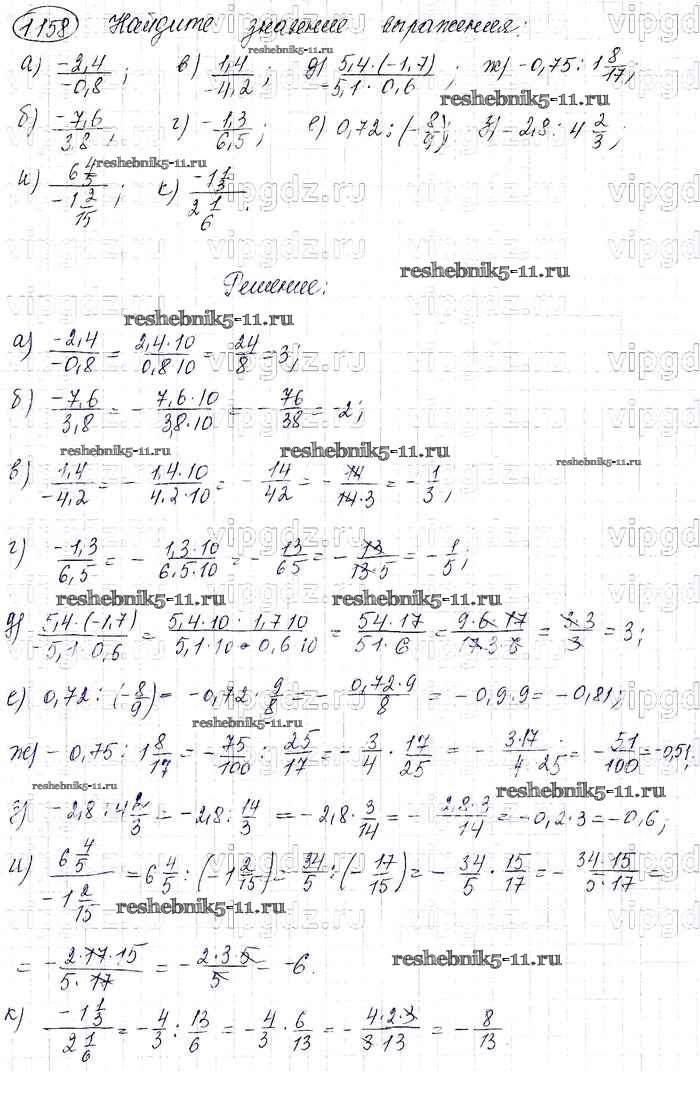 1158 Найдите значение выражения:
а) -2,4/-0,8; в) 1,4/-4,2; д) 5,4·(-1,7)/-5,1·0,6; ж) -0,75 : 1 8/17;
б) -7,6/3,8; г) -1,3/6,5; е) 0,72 : (-8/9); з) -2,8 : 4 2/3;
и) 6 4/5/-1 2/15; к) -1 1/3/2 1/6.
Решение:
а) -2,4/-0,8 = 2,4·10/0,8·10 = 24/8 = 3;
б) -7,6/3,8 = -7,6·10/3,8·10 = -76/38 = -2;
в) 1,4/-4,2 = -1,4·10/4,2·10 = -14/42 = -14/14·3 = -1/3;
г) -1,3/6,5 = -1,3·10/6,5·10 = -13/65 = -13/13·5 = -1/5;
д) 5,4·(-1,7)/-5,1·0,6 = 5,4·10·1,7·10/5,1·10·0,6·10 = 54·17/51·6 = 9·6·17/17·3·6 = 3·3/3 = 3;
е) 0,72 : (-8/9) = -0,72·9/8 = -0,72·9/8 = -0,9·9 = -0,81;
ж) -0,75 : 1 8/17 = -75/100 : 25/17 = -3/4 · 17/25 = -3·17/4·25 = -51/100 = -0,51;
з) -2,8 : 4 2/3 = -2,8 : 14/3 = -2,8·3/14 = -2,8·3/14 = -0,2·3 = -0,6;
и) 6 4/5/-1 2/15 = 6 4/5 : (-1 2/15) = 34/5 : (-17/15) = -34/5 · 15/17 = -34·15/5·17 =
= -2·17·15/5·17 = -2·3·5/5 = -6.
к) -1 1/3/2 1/6 = -4/3 : 13/6 = -4/3 · 6/13 = -4·2·3/3·13 = -8/13.
reshebnik5-11.ru
vipgdz.ru